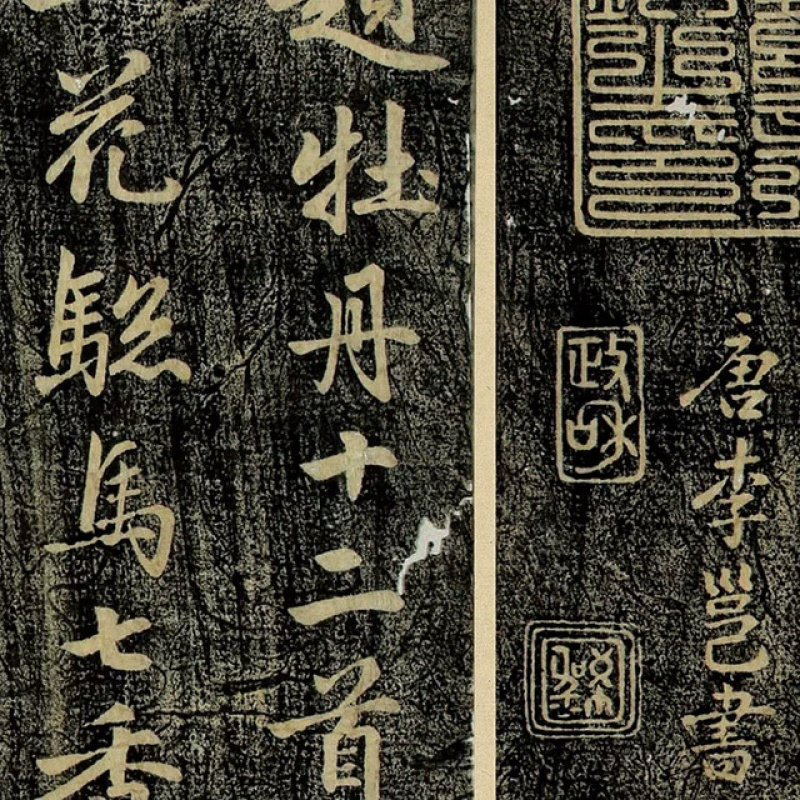 唐李邕書
政和
題牡丹十二首
花驄馬七香